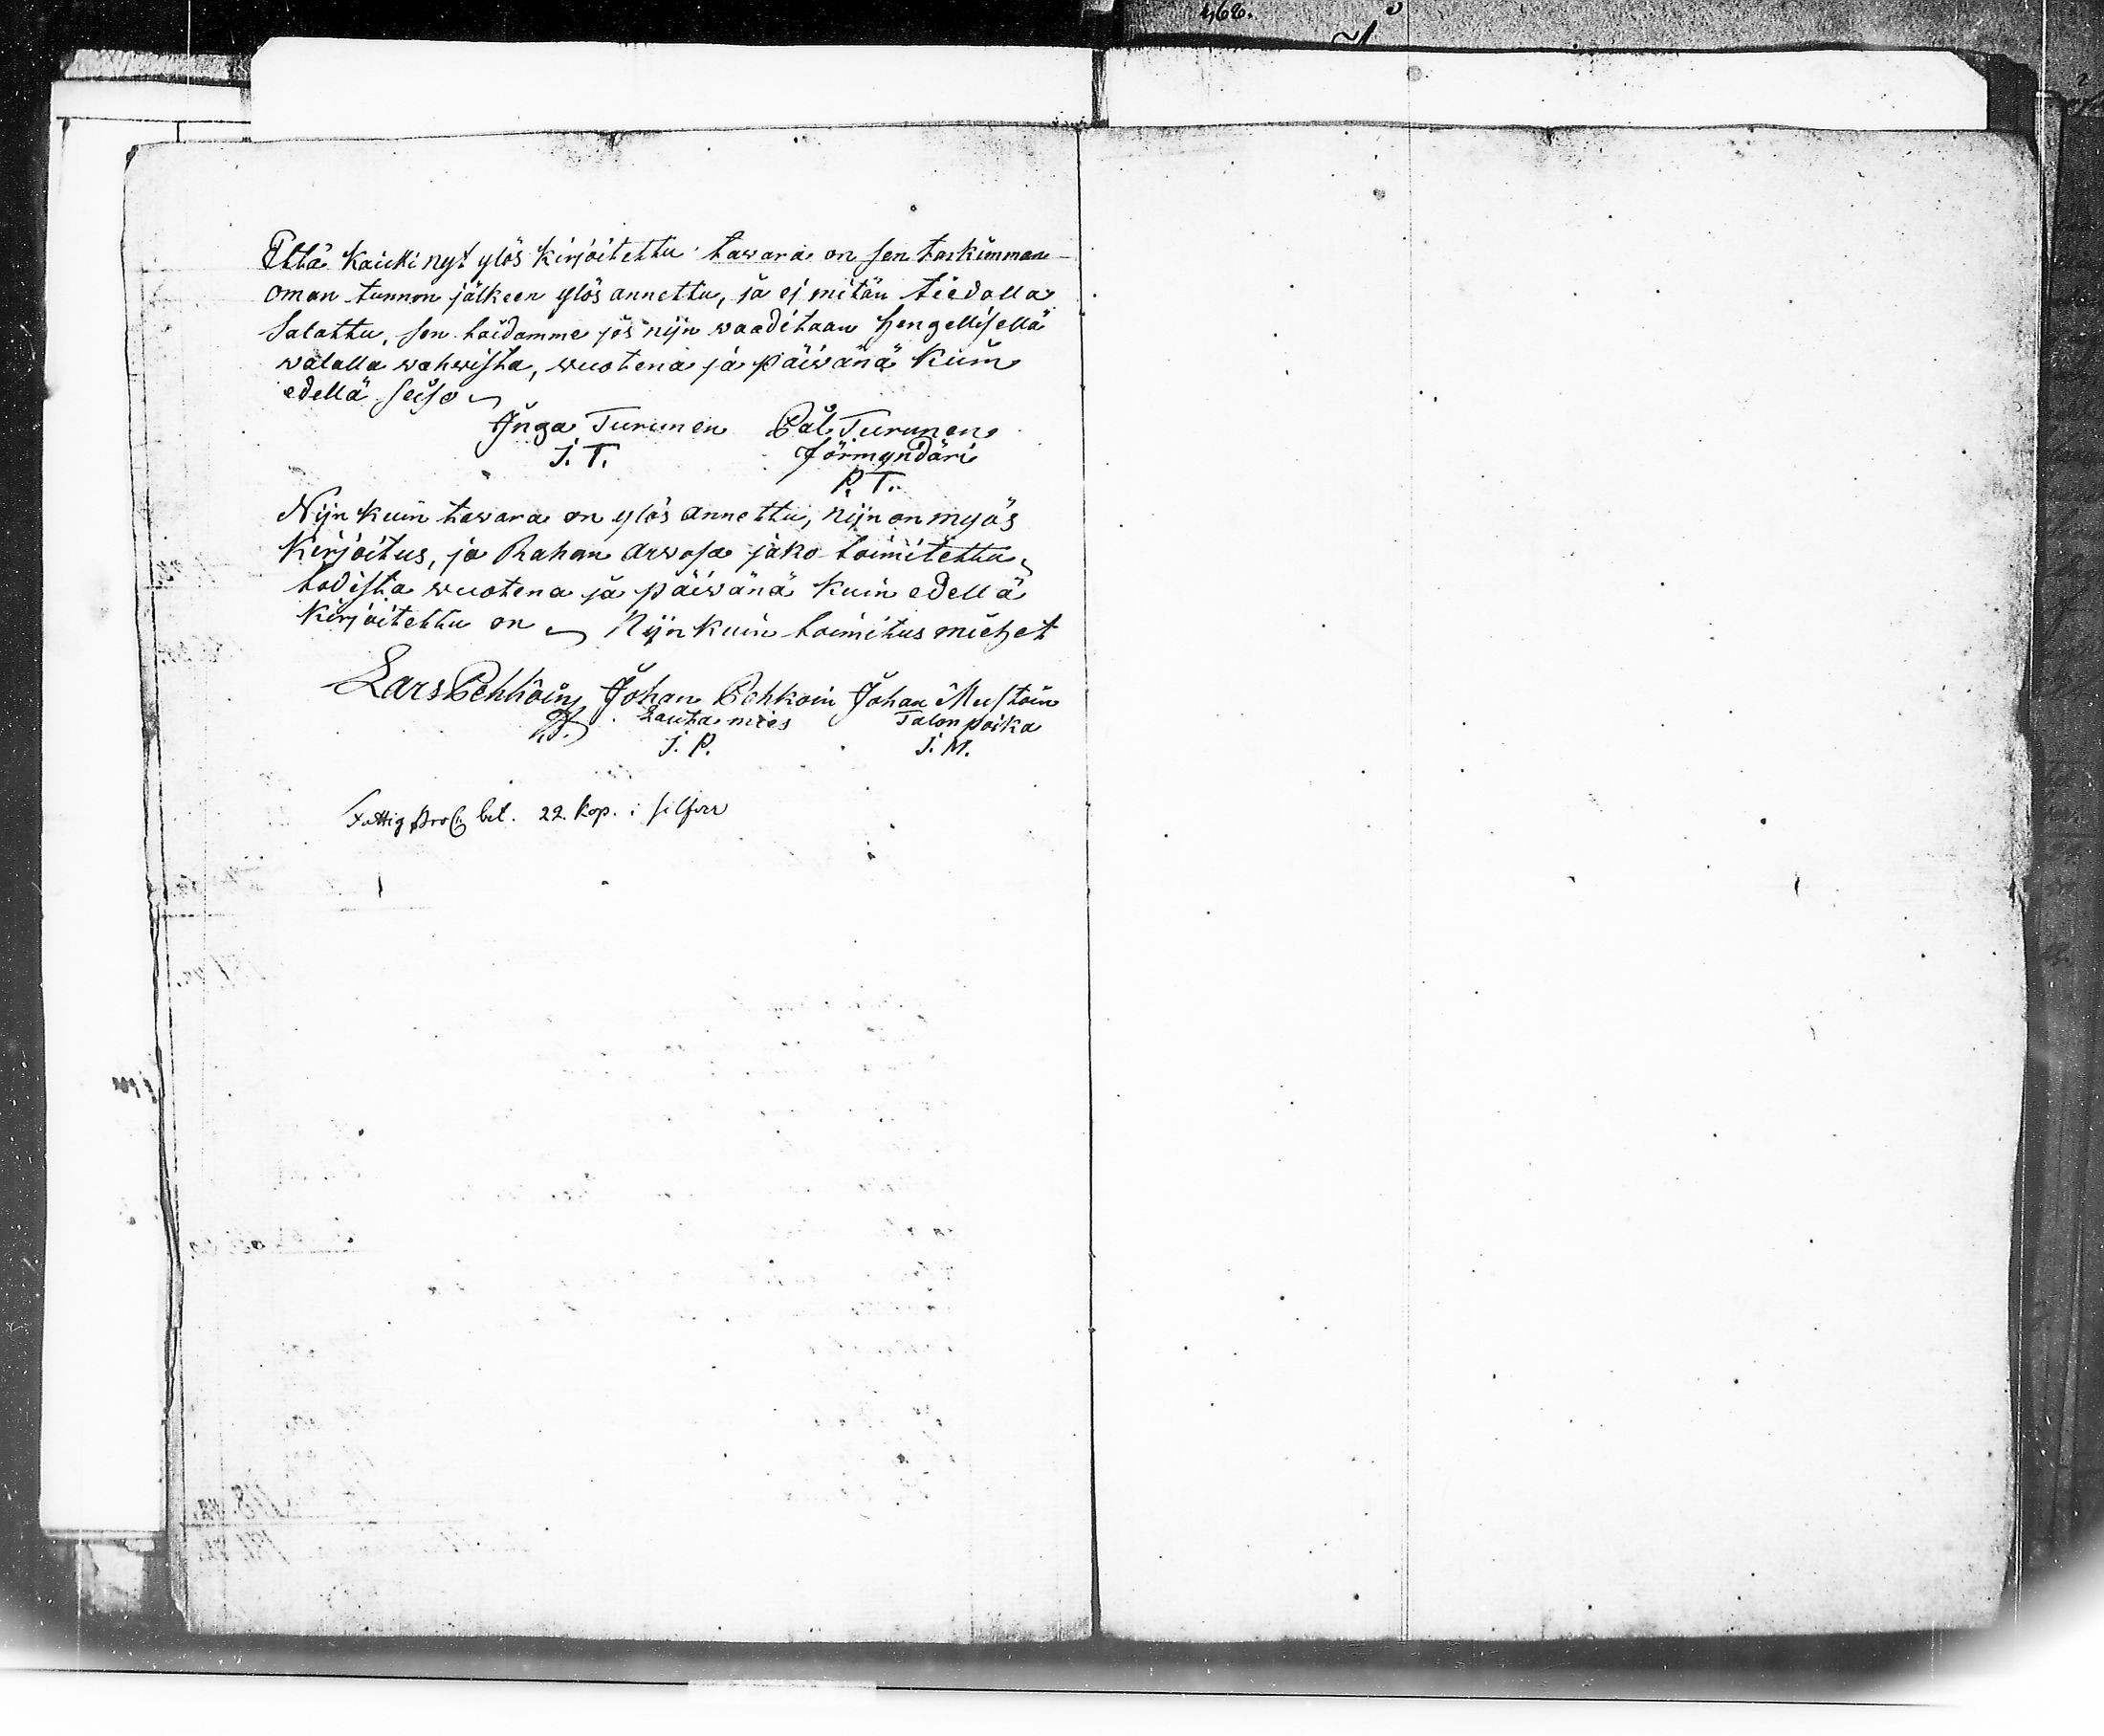 Että kaicki nyt ylös kirjoitettu tawara on sen tarkimman
oman tunnon jälkeen ylös annettu, ja ej mitän tiedolla
salattu, sen taidamme jos nijn waaditaan hengellisellä
walalla wahwista, wuotena ja päiwänä kuin
edellä seiso
Inga Turunen Pål Turunen
I. T. förmyndäri
P. T.
Nijn kuin tawara on ylös annettu, nijn on myös
kirjoitus, ja Rahan arwosa jako toimitettu
todista wuotena ja päiwänä kuin edellä
kirjoitettu on Nijn kuin toimitus miehet
Lars Pehkoin Johan Pehkoin Johan Mustoin
Lautamies Talonpoika
J. P. J. M.
Fattig Proc. bet. 22. kop. i silfver